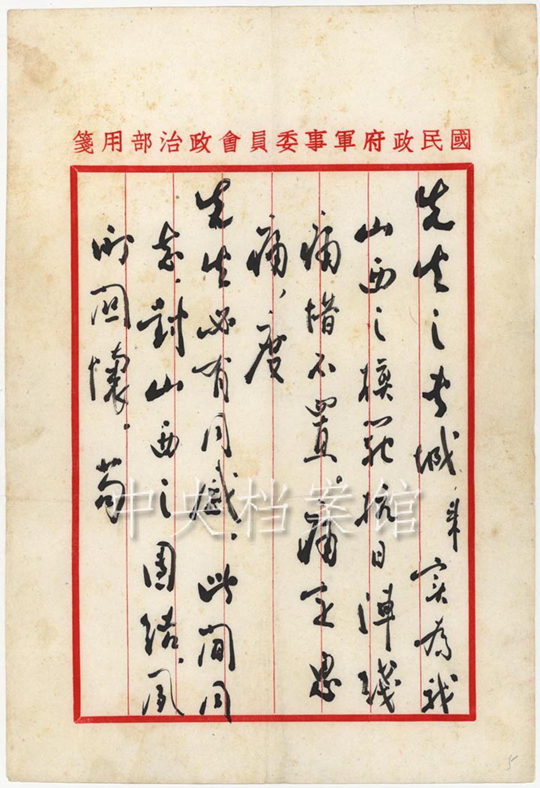 國民政府軍事委員會政治部用箋
先生之城實為我
山西之模範抗日陣綫
痛惜不置。痛定思
痛，度
先生必有同感。此間同
志，對山西之團結，夙
所關懷。苟
中央档案馆